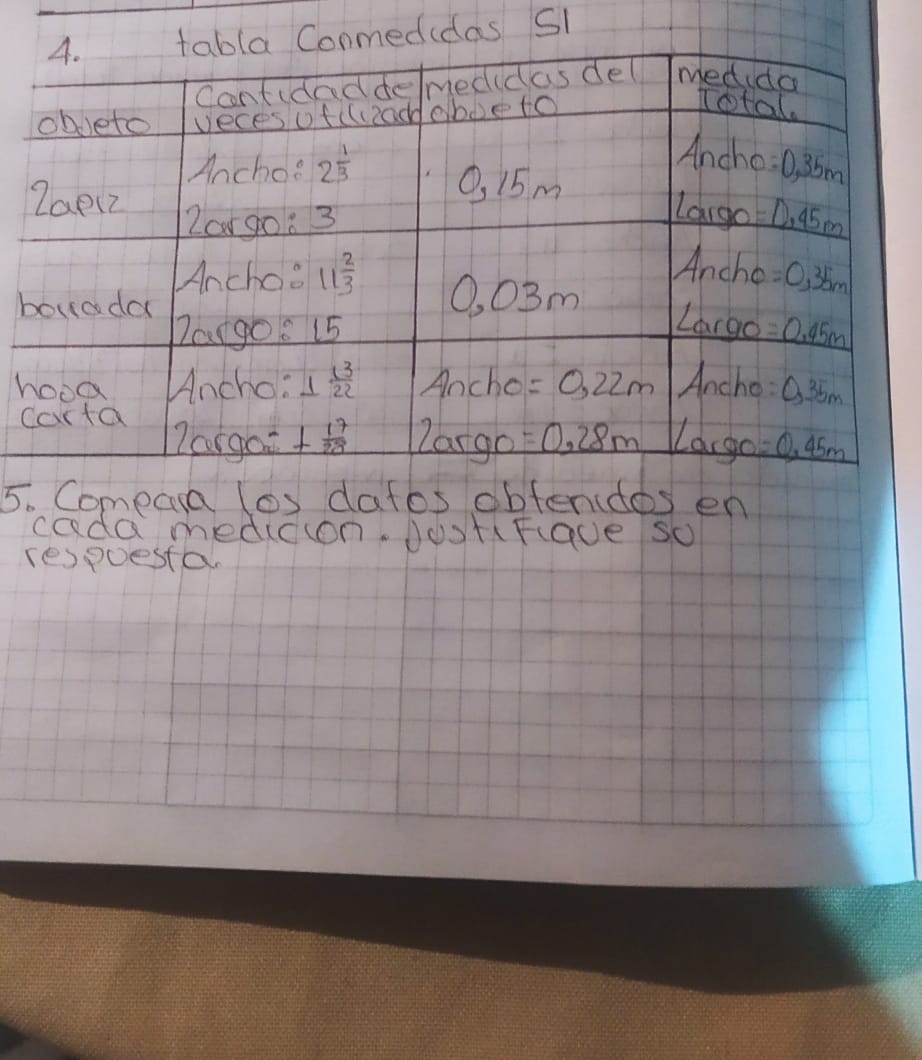 4. tabla Conmedidas SI
objeto
Cantidad de veces utilizado
medidas del objeto
medida Total.
Lapiz
Ancho: 2 1/3
Largo: 3
0,15m
Ancho=0,35m
Largo=0,45m
borrador
Ancho: 11 2/3
Largo: 15
0,03m
Ancho=0,35m
Largo=0,45m
hoja carta
Ancho: 1 13/22
Largo= 1 17/28
Ancho= 0,22m
Largo=0,28m
Ancho=0,35m
Largo=0,45m
5. Compara los datos obtenidos en
cada medicion. Justifique su
respuesta.